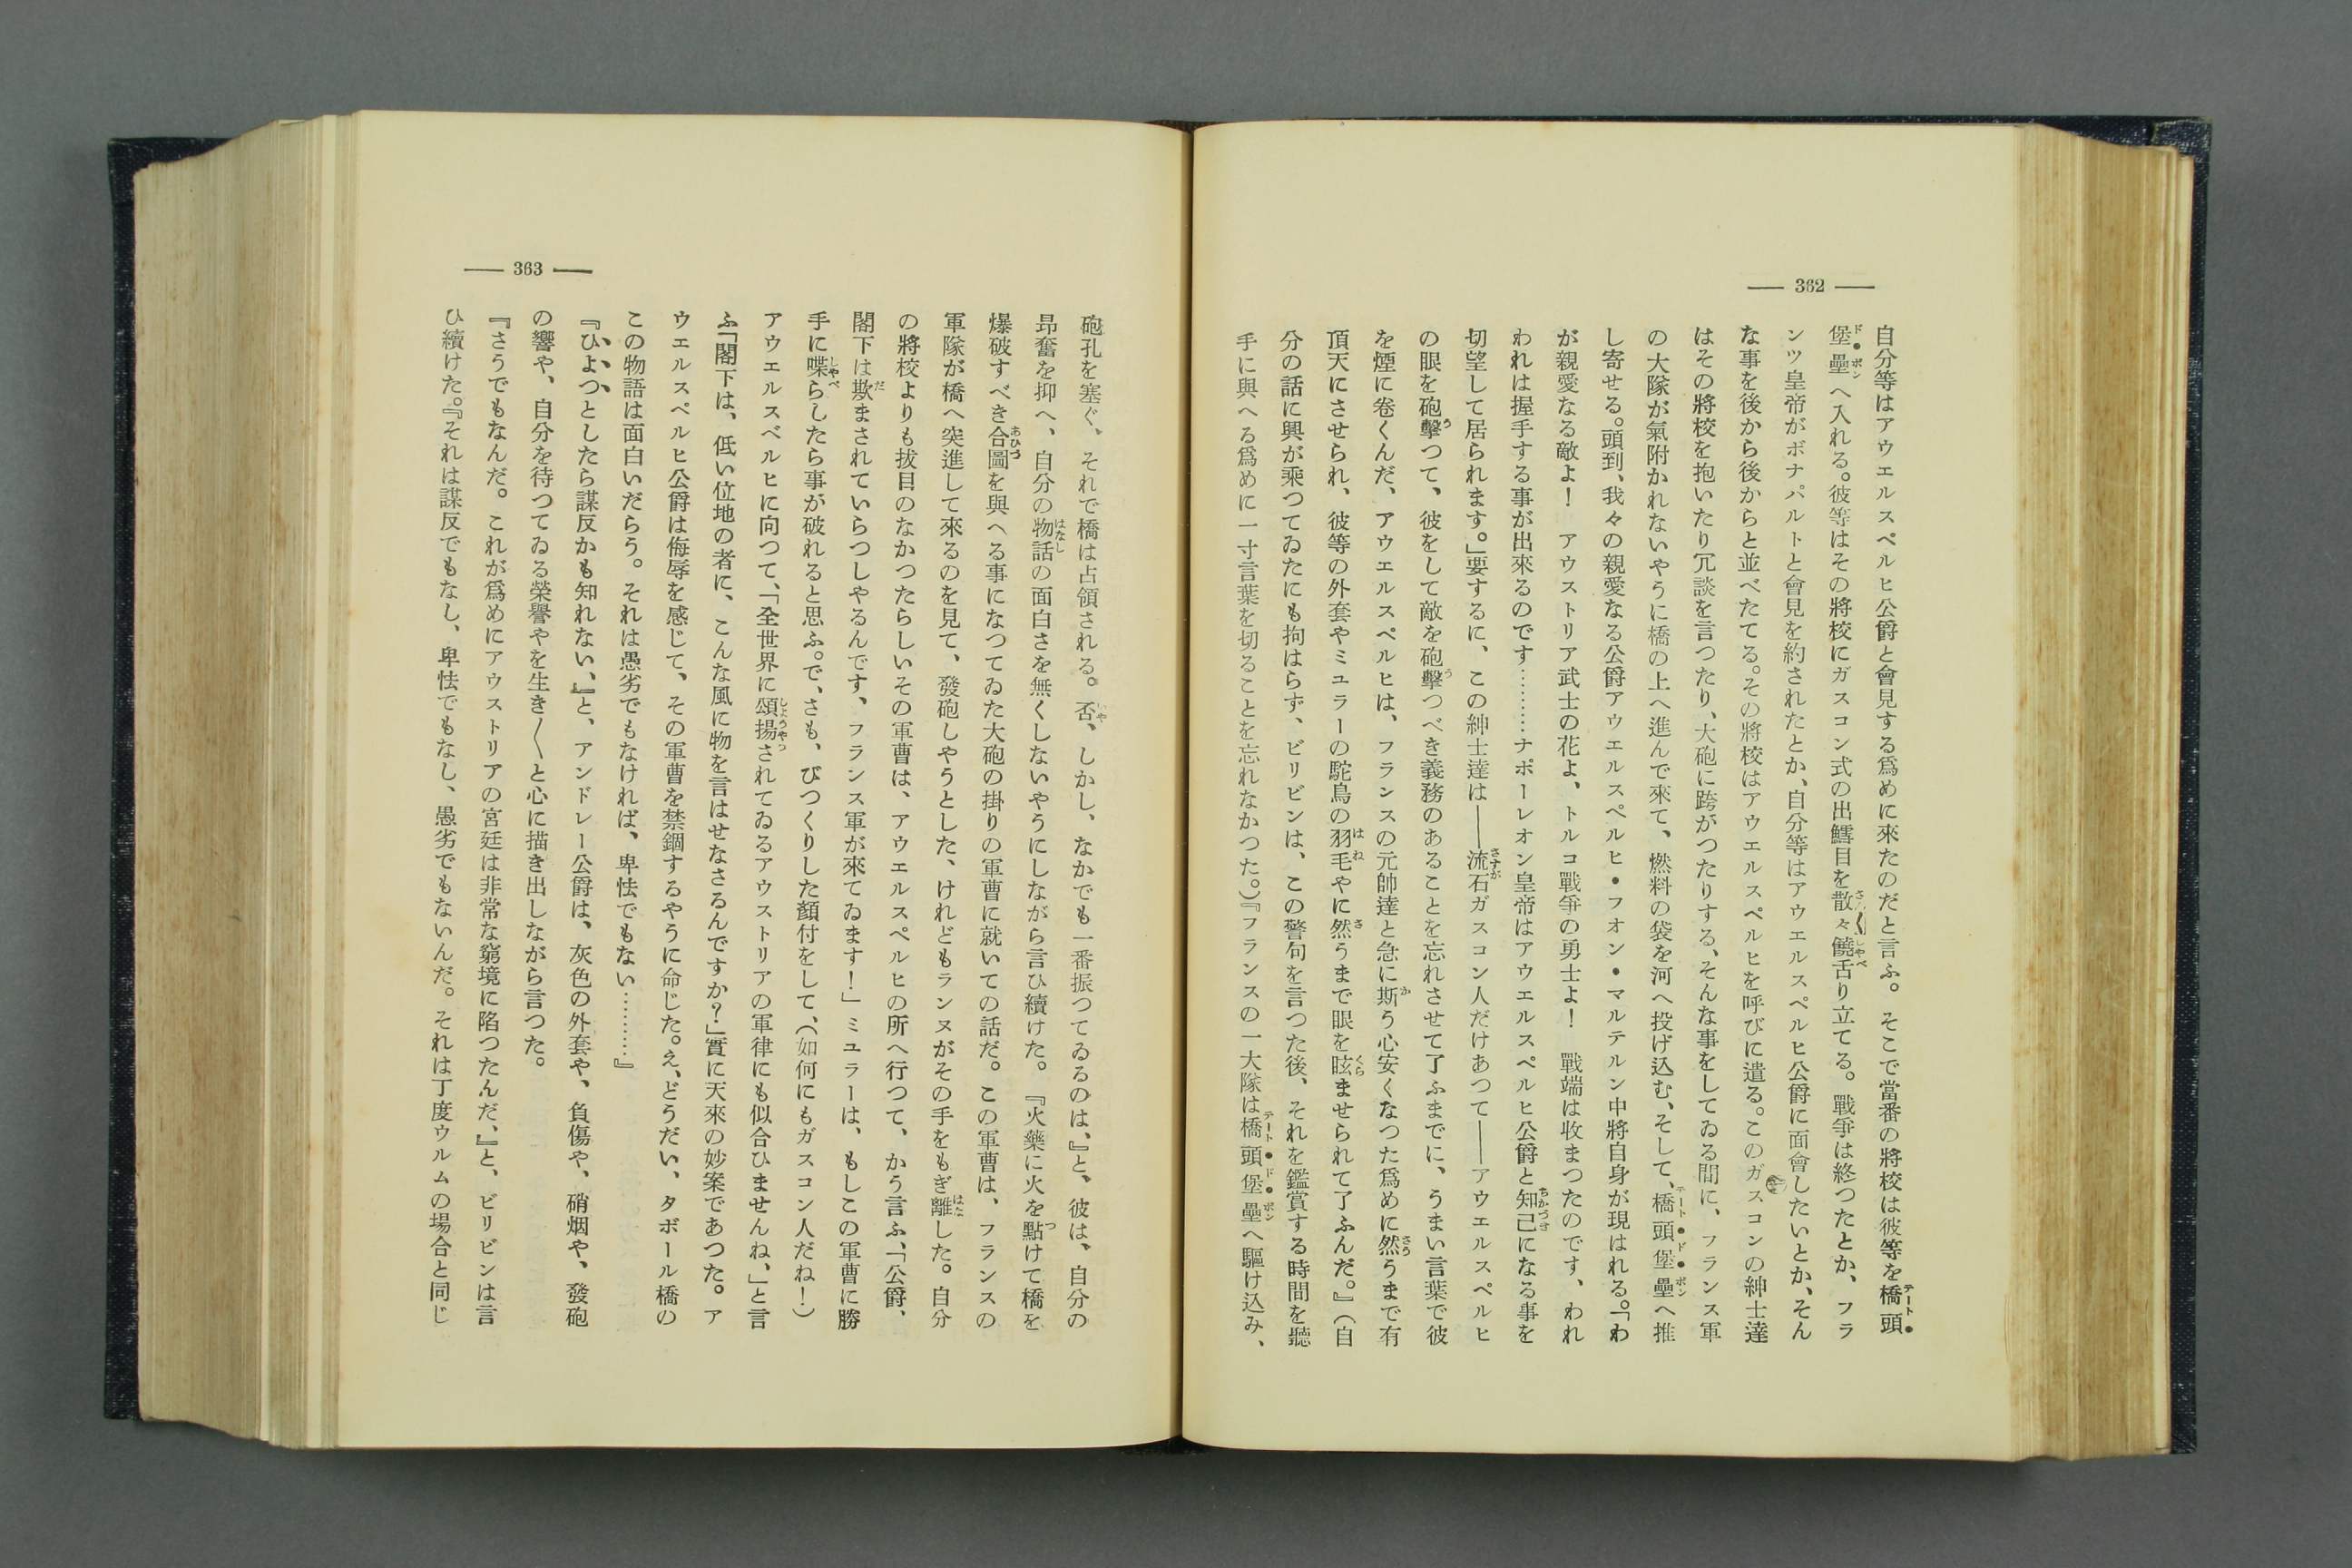 — 362 —
自分等はアウエルスペルヒ公爵と會見する爲めに來たのだと言ふ。そこで當番の將校は彼等を橋頭
堡壘へ入れる。彼等はその將校にガスコン式の出鱈目を散々饒舌り立てる。戰爭は終つたとか、フラ
ンツ皇帝がボナパルトと會見を約されたとか、自分等はアウエルスペルヒ公爵に面會したいとか、そん
な事を後から後からと並べたてる。その將校はアウエルスペルヒを呼びに遣る。このガスコンの紳士達
はその將校を抱いたり冗談を言つたり、大砲に跨がつたりする、そんな事をしてゐる間に、フランス軍
の大隊が氣附かれないやうに橋の上へ進んで來て、燃料の袋を河へ投げ込む、そして、橋頭堡壘へ推
し寄せる。頭到、我々の親愛なる公爵アウエルスペルヒ・フオン・マルテルン中將自身が現はれる。「わ
が親愛なる敵よ！　アウストリア武士の花よ、トルコ戰爭の勇士よ！　戰端は收まつたのです、われ
われは握手する事が出來るのです………ナポーレオン皇帝はアウエルスペルヒ公爵と知己になる事を
切望して居られます。」要するに、この紳士達は――流石ガスコン人だけあつて――アウエルスペルヒ
の眼を砲擊つて、彼をして敵を砲擊つべき義務のあることを忘れさせて了ふまでに、うまい言葉で彼
を煙に卷くんだ、アウエルスペルヒは、フランスの元帥達と急に斯う心安くなつた爲めに然うまで有
頂天にさせられ、彼等の外套やミユラーの駝鳥の羽毛やに然うまで眼を眩ませられて了ふんだ。』（自
分の話に興が乘つてゐたにも拘はらず、ビリビンは、この警句を言つた後、それを鑑賞する時間を聽
手に與へる爲めに一寸言葉を切ることを忘れなかつた。）『フランスの一大隊は橋頭堡壘へ驅け込み、
— 363 —
砲孔を塞ぐ、それで橋は占領される。否、しかし、なかでも一番振つてゐるのは、』と、彼は、自分の
昂奮を抑へ、自分の物話の面白さを無くしないやうにしながら言ひ續けた。『火藥に火を點けて橋を
爆破すべき合圖を與へる事になつてゐた大砲の掛りの軍曹に就いての話だ。この軍曹は、フランスの
軍隊が橋へ突進して來るのを見て、發砲しやうとした、けれどもランヌがその手をもぎ離した。自分
の將校よりも拔目のなかつたらしいその軍曹は、アウエルスペルヒの所へ行つて、かう言ふ、「公爵、
閣下は欺まされていらつしやるんです、フランス軍が來てゐます！」ミユラーは、もしこの軍曹に勝
手に喋らしたら事が破れると思ふ。で、さも、びつくりした顏付をして、（如何にもガスコン人だね！）
アウエルスベルヒに向つて、「全世界に頌揚されてゐるアウストリアの軍律にも似合ひませんね、」と言
ふ「閣下は、低い位地の者に、こんな風に物を言はせなさるんですか？」實に天來の妙案であつた。ア
ウエルスペルヒ公爵は侮辱を感じて、その軍曹を禁錮するやうに命じた。え、どうだい、タボール橋の
この物語は面白いだらう。それは愚劣でもなければ、卑怯でもない………』
『ひよつとしたら謀反かも知れない、』と、アンドレー公爵は、灰色の外套や、負傷や、硝烟や、發砲
の響や、自分を待つてゐる榮譽やを生き〱と心に描き出しながら言つた。
『さうでもなんだ。これが爲めにアウストリアの宮廷は非常な窮境に陷つたんだ、』と、ビリビンは言
ひ續けた。『それは謀反でもなし、卑怯でもなし、愚劣でもないんだ。それは丁度ウルムの場合と同じ